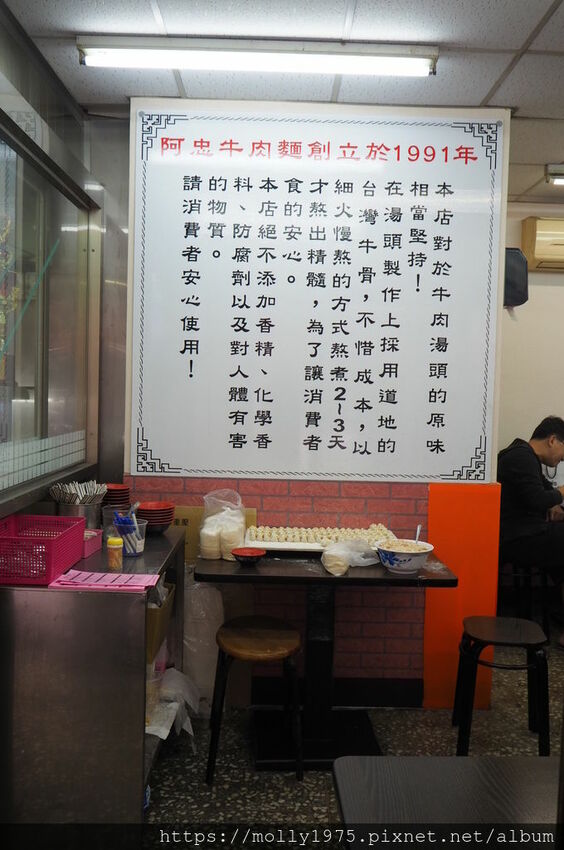 阿忠牛肉麵創立於1991年
本店對於牛肉湯頭的原味
相當堅持！
在湯頭製作上採用道地的
台灣牛骨，不惜成本，以
細火慢熬的方式熬煮2~3天
才熬出精髓，為了讓消費者
食的安心。
本店絕不添加香精、化學香
料、防腐劑以及對人體有害
的物質。
請消費者安心使用！
https://molly1975.pixnet.net/album